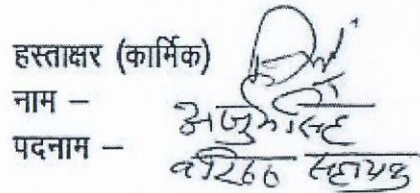 हस्ताक्षर (कार्मिक)
नाम –
पदनाम – वरिष्ठ सहायक